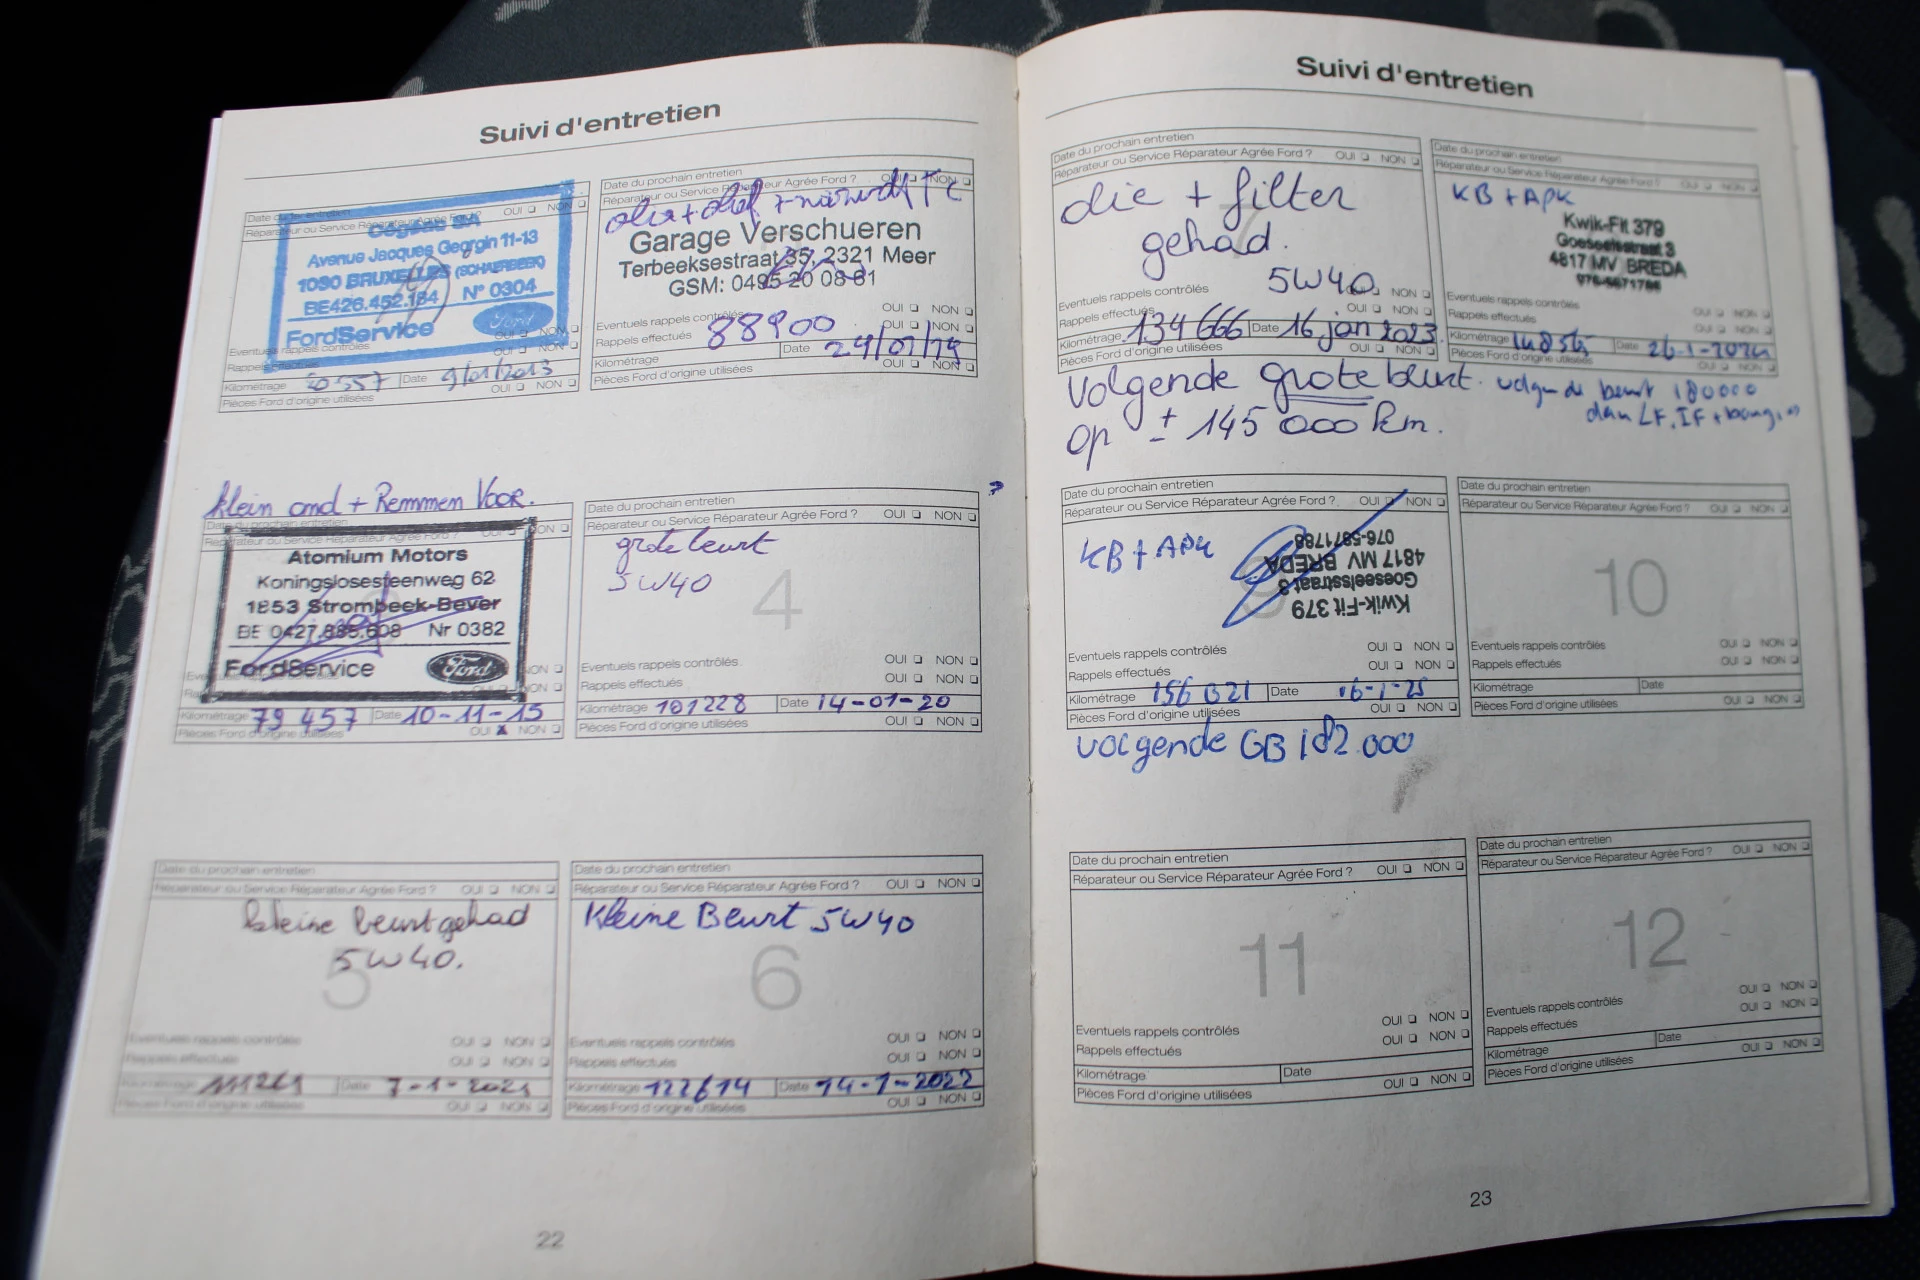 Suivi d'entretien
Date du prochain entretien
Réparateur ou Service Réparateur Agrée Ford ? OUI NON
Avenue Jacques Georgin 11-13
1030 BRUXELLES (SCHAERBEEK)
BE426.452.184 N° 0304
FordService Ford
Eventuels rappels contrôlés OUI NON
Rappels effectués OUI NON
Kilométrage Date 9/01/2013
Pièces Ford d'origine utilisées OUI NON
Date du prochain entretien
Réparateur ou Service Réparateur Agrée Ford ? OUI NON
Garage Verschueren
Terbeeksestraat 35, 2321 Meer
GSM: 0495 20 08 81
Eventuels rappels contrôlés OUI NON
Rappels effectués 88900 OUI NON
Kilométrage Date 24/01/19
Pièces Ford d'origine utilisées OUI NON
klein ond + Remmen Voor.
Date du prochain entretien
Réparateur ou Service Réparateur Agrée Ford ? OUI NON
Atomium Motors
Koningslosesteenweg 62
1853 Strombeek-Bever
BE 0427.885.608 Nr 0382
FordService Ford
NON
NON
Kilométrage 79 457 Date 10-11-15
Pièces Ford d'origine utilisées OUI X NON
Date du prochain entretien
Réparateur ou Service Réparateur Agrée Ford ? OUI NON
grote beurt
5W40
4
Eventuels rappels contrôlés OUI NON
Rappels effectués OUI NON
Kilométrage 101228 Date 14-01-20
Pièces Ford d'origine utilisées OUI NON
Date du prochain entretien
Réparateur ou Service Réparateur Agrée Ford ? OUI NON
kleine beurt gehad
5W40.
5
Eventuels rappels contrôlés OUI NON
Rappels effectués OUI NON
Kilométrage 111261 Date 7-1-2021
Pièces Ford d'origine utilisées OUI NON
Date du prochain entretien
Réparateur ou Service Réparateur Agrée Ford ? OUI NON
Kleine Beurt 5W40
6
Eventuels rappels contrôlés OUI NON
Rappels effectués OUI NON
Kilométrage 122614 Date 14-1-2022
Pièces Ford d'origine utilisées OUI NON
22
Suivi d'entretien
Date du prochain entretien
Réparateur ou Service Réparateur Agrée Ford ? OUI NON
olie + filter
gehad.
7
5W40
Eventuels rappels contrôlés OUI NON
Rappels effectués OUI NON
Kilométrage 134666 Date 16 jan 2023
Pièces Ford d'origine utilisées OUI NON
Volgende grote beurt.
op ± 145 000 km.
Date du prochain entretien
Réparateur ou Service Réparateur Agrée Ford ? OUI NON
KB + APK
Kwik-Fit 379
Goeseelsstraat 3
4817 MV BREDA
076-5871788
Eventuels rappels contrôlés OUI NON
Rappels effectués OUI NON
Kilométrage Date 26-1-2024
Pièces Ford d'origine utilisées OUI NON
volgende beurt 180000
dan LF, IF +
Date du prochain entretien
Réparateur ou Service Réparateur Agrée Ford ? OUI NON
KB + APK
Kwik-Fit 379
Goeseelsstraat 3
4817 MV BREDA
076-5871788
9
Eventuels rappels contrôlés OUI NON
Rappels effectués OUI NON
Kilométrage 156 021 Date 16-1-25
Pièces Ford d'origine utilisées OUI NON
volgende GB 182.000
Date du prochain entretien
Réparateur ou Service Réparateur Agrée Ford ? OUI NON
10
Eventuels rappels contrôlés OUI NON
Rappels effectués OUI NON
Kilométrage Date
Pièces Ford d'origine utilisées OUI NON
Date du prochain entretien
Réparateur ou Service Réparateur Agrée Ford ? OUI NON
11
Eventuels rappels contrôlés OUI NON
Rappels effectués OUI NON
Kilométrage Date
Pièces Ford d'origine utilisées OUI NON
Date du prochain entretien
Réparateur ou Service Réparateur Agrée Ford ? OUI NON
12
Eventuels rappels contrôlés OUI NON
Rappels effectués OUI NON
Kilométrage Date
Pièces Ford d'origine utilisées OUI NON
23